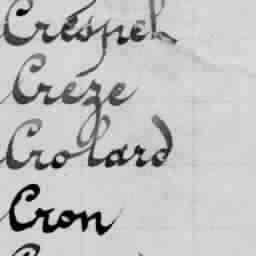 Crespel
Crèze
Crolard
Cron